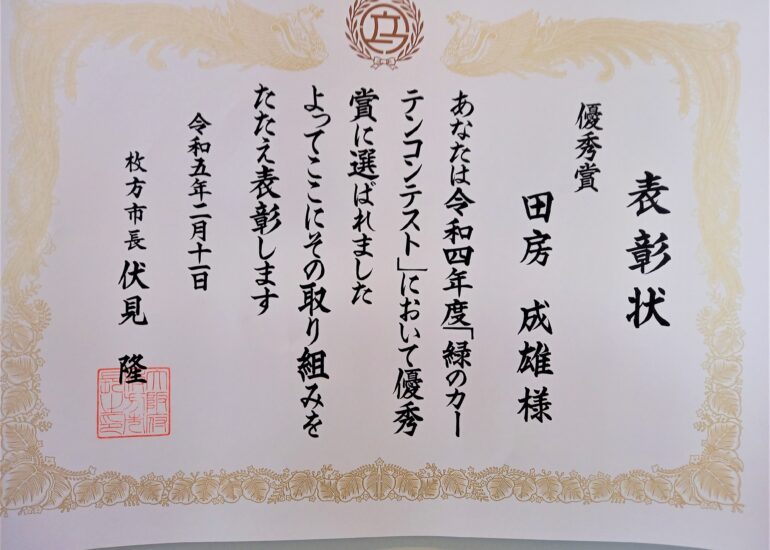 表彰状
優秀賞
田房 成雄様
あなたは令和四年度「緑のカー
テンコンテスト」において優秀
賞に選ばれました
よってここにその取り組みを
たたえ表彰します
令和五年二月十一日
枚方市長 伏見 隆